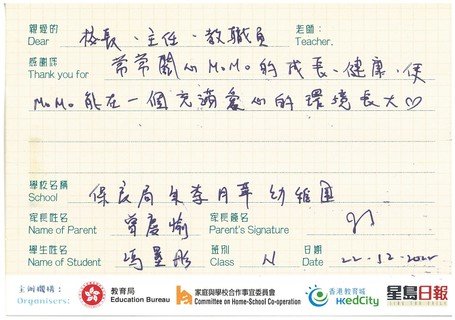 親愛的 校長、主任、教職員 老師：
Dear Teacher,
感謝你 常常關心MoMo的成長、健康、使
Thank you for
MoMo能在一個充滿愛心的環境長大♡
學校名稱 保良局朱李月華幼稚園
School
家長姓名 曾慶愉 家長簽名
Name of Parent Parent's Signature
學生姓名 馮墨彤 班別 N 日期 22-12-2022
Name of Student Class Date
主辦機構： 教育局 家庭與學校合作事宜委員會 香港教育城 星島日報
Organisers: Education Bureau Committee on Home-School Co-operation HKedCity